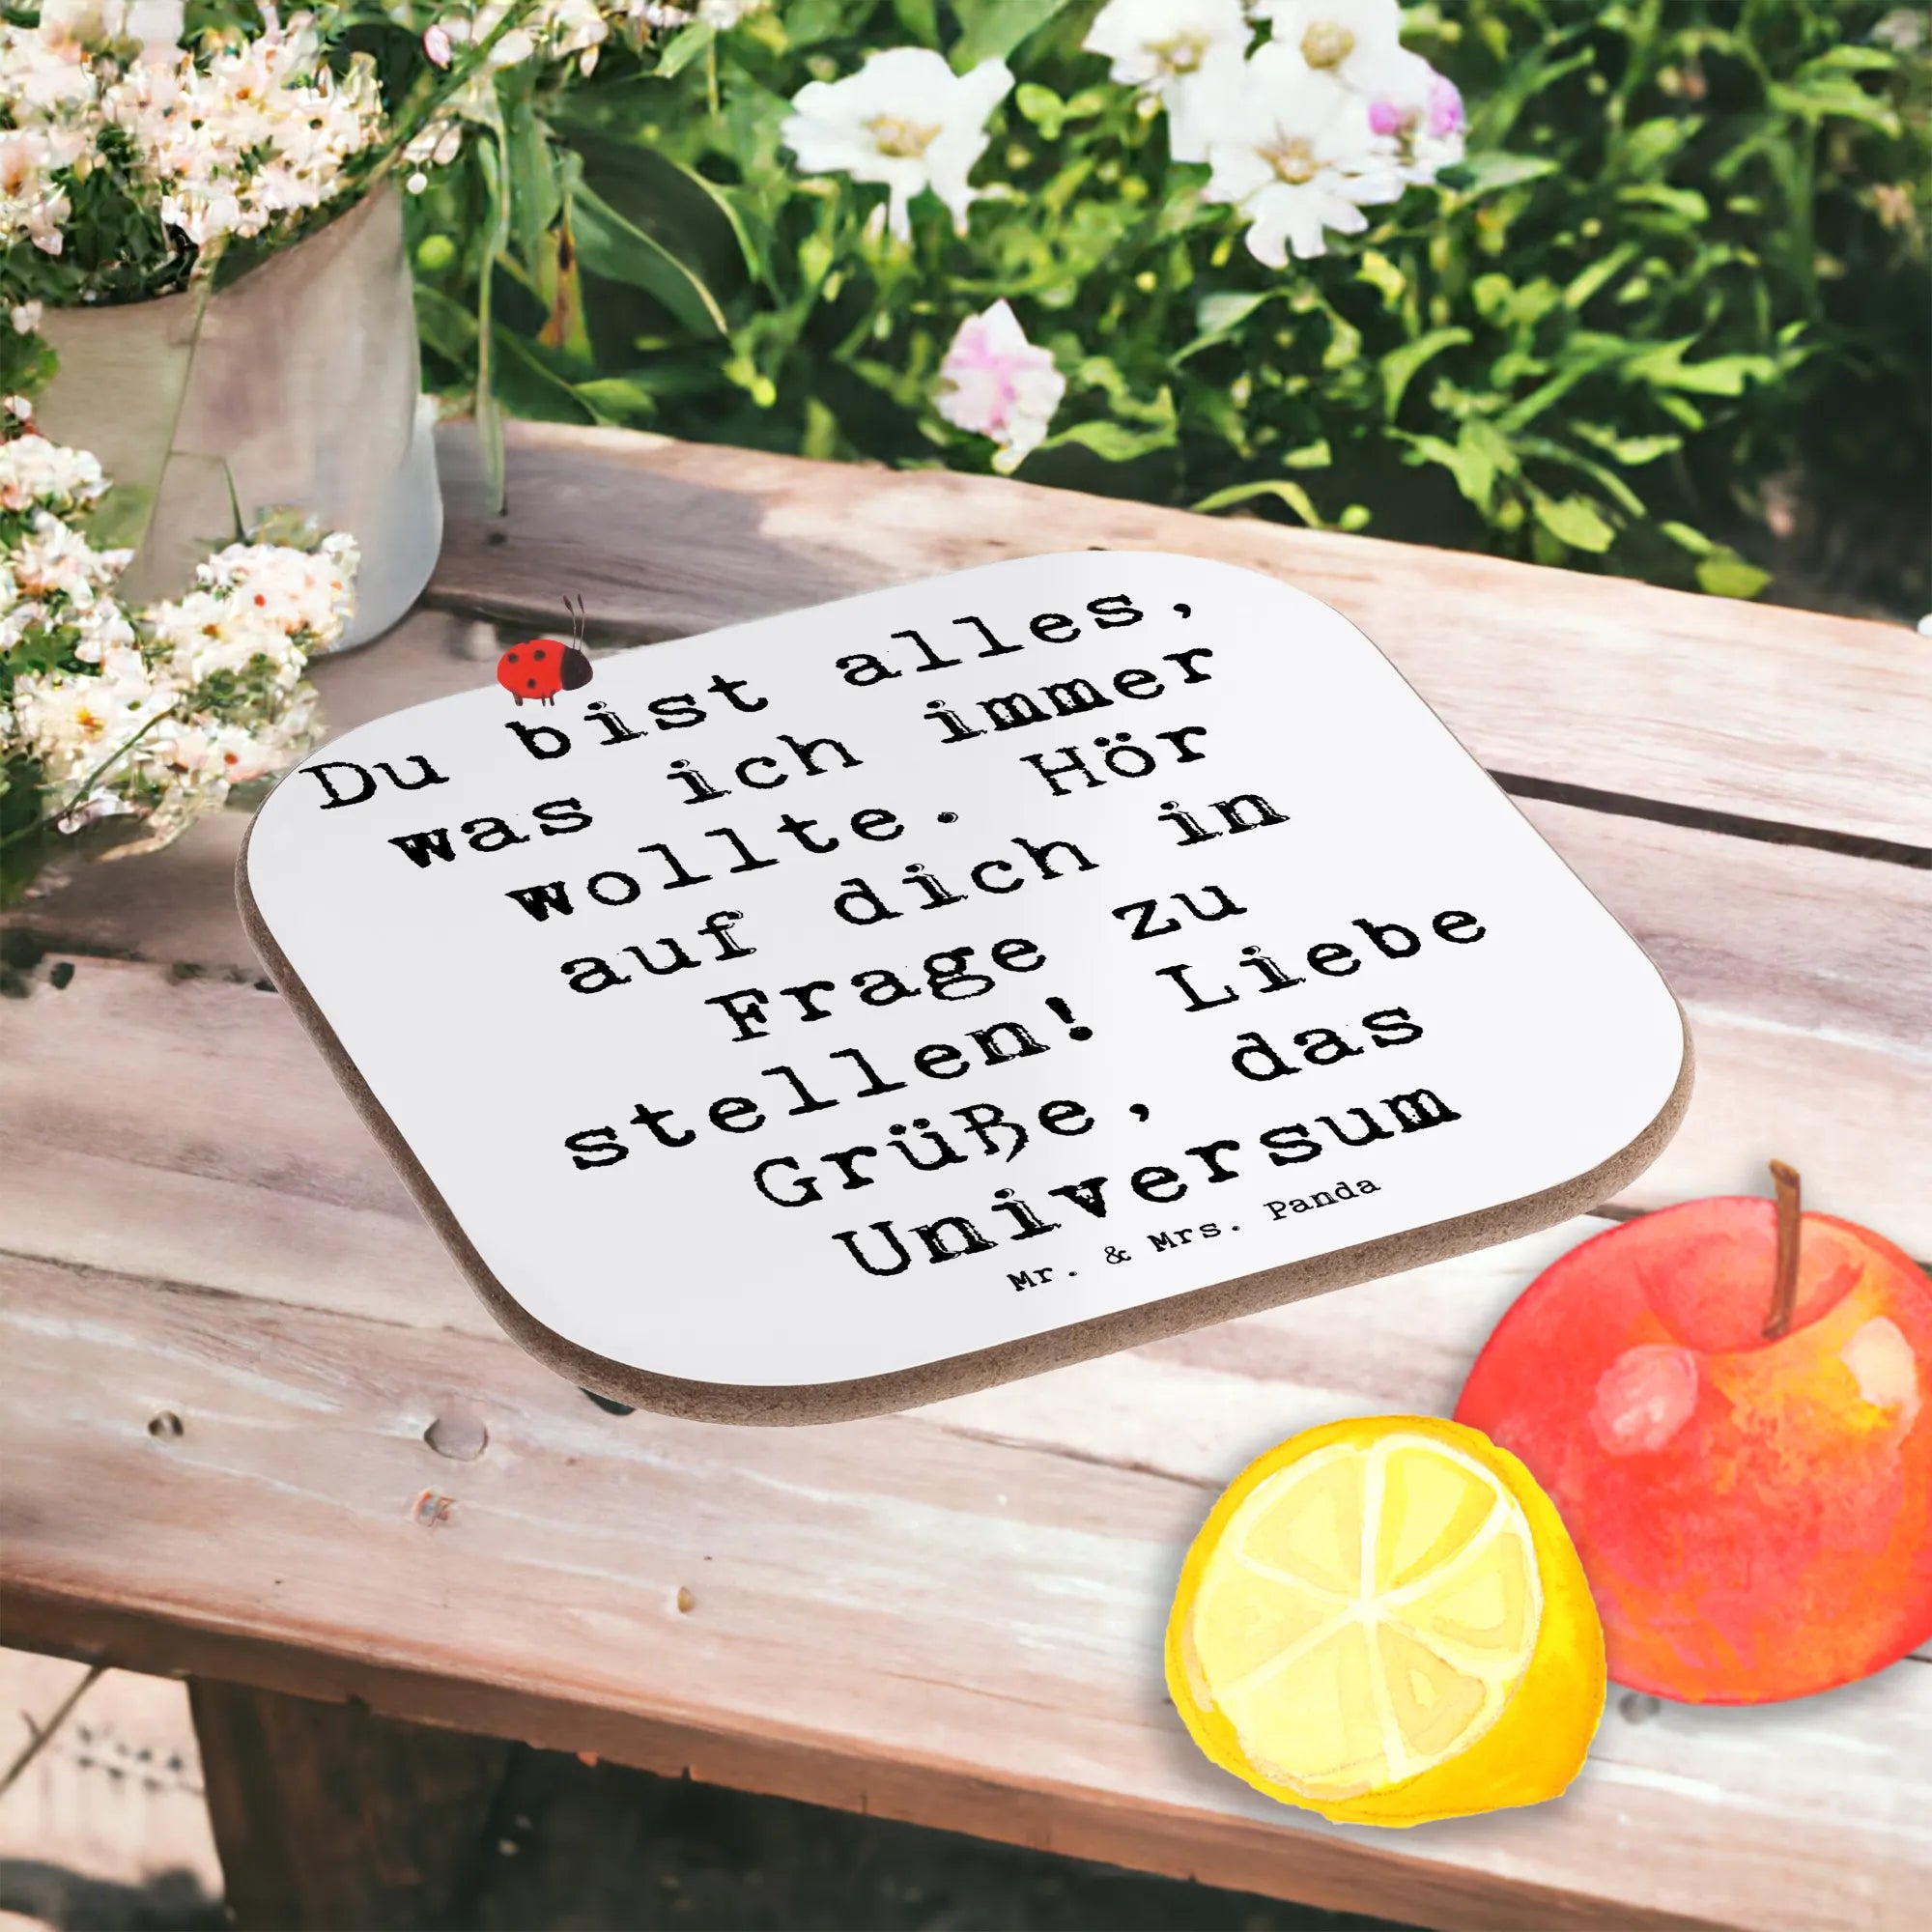 Du bist alles,
was ich immer
wollte. Hör
auf dich in
Frage zu
stellen! Liebe
Grüße, das
Universum
Mr. & Mrs. Panda